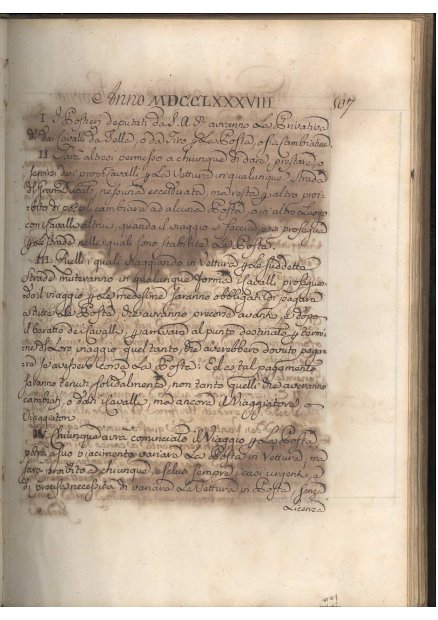 Anno MDCCLXXXVIII 507
I. I Postieri deputati da S. A. R. avranno la Privativa
dai Cavalli da Sella, o da Tiro p la Posta, o sia Cambiatura
II Sarà altresì permesso a chiunque di dare, prestare, o
servirsi dei proprj Cavalli p la Vettura in qualunque Strada
del Gran-Ducato, nessuna eccettuata, ma resta p altro proi-
bito di poterli cambiare ad alcuna Posta, o in altro Luogo
con Cavalli altrui, quando il viaggio si faccia, e si proseguа
p le strade nelle quali sono stabilite le Poste.
III. Quelli i quali viaggiando in Vettura p le suddette
Strade muteranno in qualunque forma i Cavalli proseguen-
do il viaggio p le medesime saranno obbligati di pagare
a tutte le Poste che avranno precorse avanti, e dopo
il baratto dei Cavalli, p arrivare al punto destinato, e termi-
ne del Loro viaggio quel tanto, che averebbero dovuto paga-
re se avessero corsa la Posta: Ed a tal pagamento
saranno tenuti solidalmente, non tanto quelli che averanno
cambiati, o dati i Cavalli, ma ancora il Viaggiatore, o
Viaggiatori.
IV. Chiunque avrà cominciato il Viaggio p la Posta
potrà a suo piacimento variare la Posta in Vettura, ma
sarà proibito a chiunque, esclusi sempre i casi urgenti, e
di precisa necessità di variare la Vettura in Posta, senza
Licenza